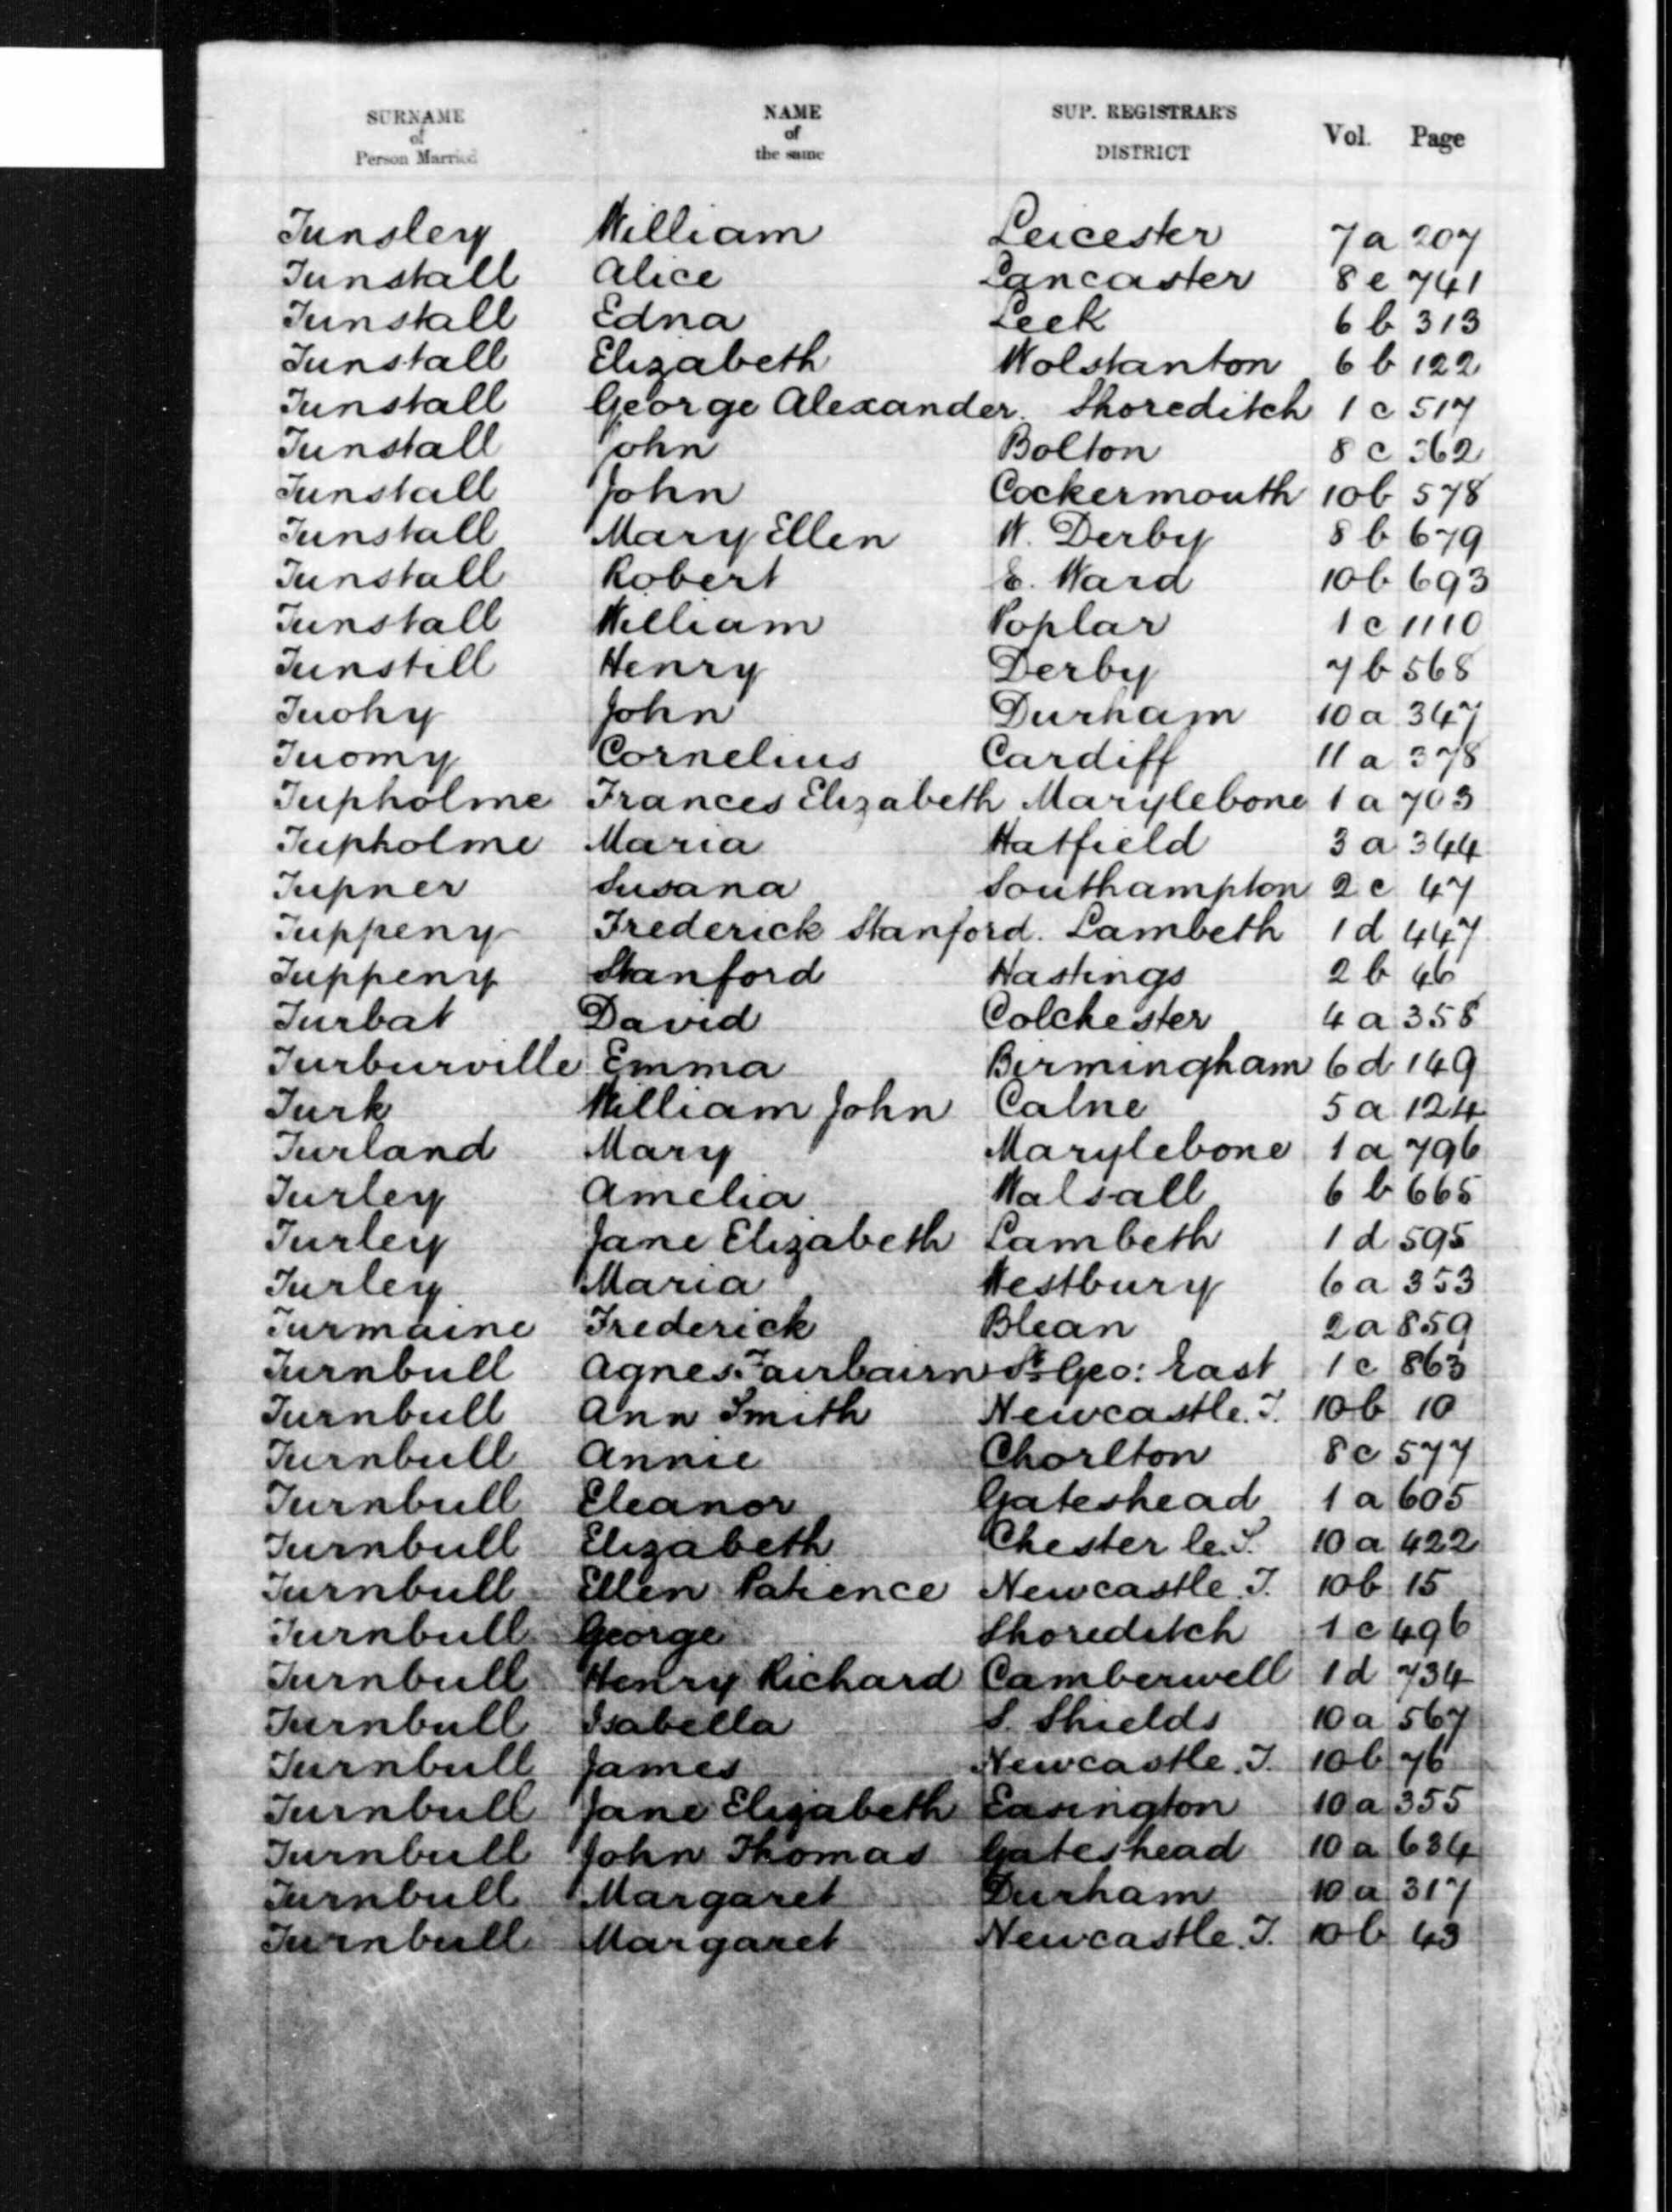 SURNAME of Person Married NAME of the same SUP. REGISTRAR'S DISTRICT Vol. Page
Tunsley William Leicester 7a 207
Tunstall Alice Lancaster 8e 741
Tunstall Edna Leek 6b 313
Tunstall Elizabeth Wolstanton 6b 122
Tunstall George Alexander. Shoreditch 1c 517
Tunstall John Bolton 8c 362
Tunstall John Cockermouth 10b 578
Tunstall Mary Ellen W. Derby 8b 679
Tunstall Robert E. Ward 10b 693
Tunstall William Poplar 1c 1110
Tunstill Henry Derby 7b 568
Tuohy John Durham 10a 347
Tuomy Cornelius Cardiff 11a 378
Tupholme Frances Elizabeth Marylebone 1a 703
Tupholme Maria Hatfield 3a 344
Tupner Susana Southampton 2c 47
Tuppeny Frederick Stanford. Lambeth 1d 447
Tuppeny Stanford Hastings 2b 46
Turbat David Colchester 4a 358
Turburville Emma Birmingham 6d 149
Turk William John Calne 5a 124
Turland Mary Marylebone 1a 796
Turley Amelia Walsall 6b 665
Turley Jane Elizabeth Lambeth 1d 595
Turley Maria Westbury 6a 353
Turmaine Frederick Blean 2a 859
Turnbull Agnes Fairbairn St Geo: East 1c 863
Turnbull Ann Smith Newcastle. T. 10b 10
Turnbull Annie Chorlton 8c 577
Turnbull Eleanor Gateshead 1a 605
Turnbull Elizabeth Chester le. S. 10a 422
Turnbull Ellen Patience Newcastle. T. 10b 15
Turnbull George Shoreditch 1c 496
Turnbull Henry Richard Camberwell 1d 734
Turnbull Isabella S. Shields 10a 567
Turnbull James Newcastle. T. 10b 76
Turnbull Jane Elizabeth Easington 10a 355
Turnbull John Thomas Gateshead 10a 634
Turnbull Margaret Durham 10a 317
Turnbull Margaret Newcastle. T. 10b 43